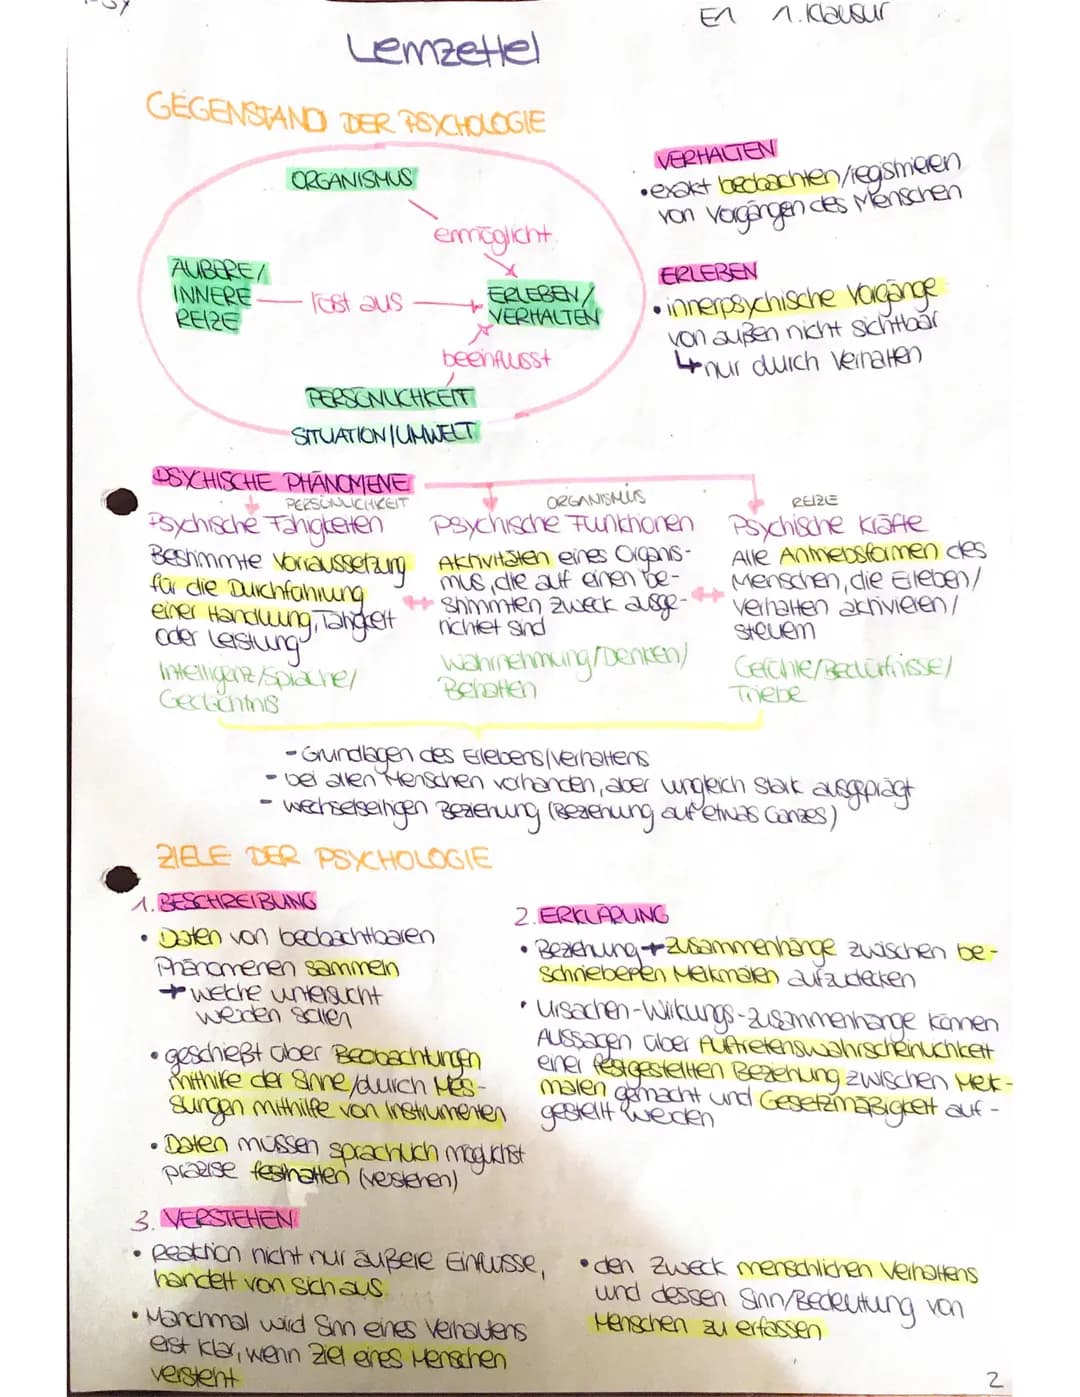 E1 1. Klausur
Lernzettel
GEGENSTAND DER PSYCHOLOGIE
ORGANISMUS
ermöglicht
ÄUßERE/
INNERE
REIZE
löst aus
ERLEBEN/
VERHALTEN
beeinflusst
PERSÖNLICHKEIT
SITUATION/UMWELT
VERHALTEN
• exakt beobachten/registrieren
von Vorgängen des Menschen
ERLEBEN
• innerpsychische Vorgänge
von außen nicht sichtbar
↳ nur durch Verhalten
PSYCHISCHE PHÄNOMENE
PERSÖNLICHKEIT
Psychische Fähigkeiten
Bestimmte Vorraussetzung
für die Durchführung
einer Handlung, Tätigkeit
oder Leistung
Intelligenz/Sprache/
Gedächtnis
ORGANISMUS
Psychische Funktionen
Aktivitäten eines Organis-
mus, die auf einen be-
stimmten Zweck ausge-
richtet sind
Wahrnehmung/Denken/
Behalten
REIZE
Psychische Kräfte
Alle Antriebsformen des
Menschen, die Erleben/
Verhalten aktivieren/
steuern
Gefühle/Bedürfnisse/
Triebe
- Grundlagen des Erlebens/Verhaltens
- bei allen Menschen vorhanden, aber ungleich stark ausgeprägt
- wechselseitigen Beziehung (Beziehung auf etwas Ganzes)
ZIELE DER PSYCHOLOGIE
1. BESCHREIBUNG
• Daten von beobachtbaren
Phänomenen sammeln
→ welche untersucht
werden sollen
• geschießt über Beobachtungen
mithilfe der Sinne/durch Mes-
sungen mithilfe von Instrumenten
• Daten müssen sprachlich möglichst
präzise festhalten (verstehen)
2. ERKLÄRUNG
• Beziehung + Zusammenhänge zwischen be-
schriebenen Merkmalen aufzudecken
• Ursachen-Wirkungs-Zusammenhänge können
Aussagen über Auftretenswahrscheinlichkeit
einer festgestellten Beziehung zwischen Merk-
malen gemacht und Gesetzmäßigkeit auf-
gestellt werden
3. VERSTEHEN
• Reaktion nicht nur äußere Einflüsse,
handelt von sich aus
• Manchmal wird Sinn eines Verhaltens
erst klar, wenn Ziel eines Menschen
versteht
• den Zweck menschlichen Verhaltens
und dessen Sinn/Bedeutung von
Menschen zu erfassen
2